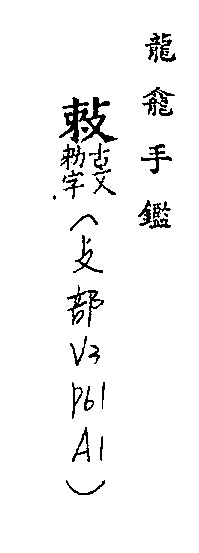 龍龕手鑑
𢾭古文勑字(攴部V3P61A1)